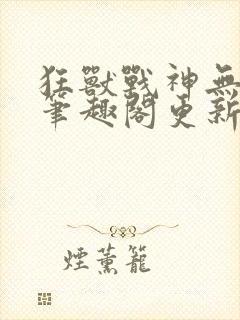 狂獸戰神無
筆趣閣更新
煙薰籠